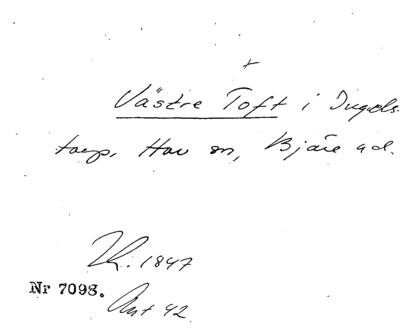 Västre Toft i Ingels-
torp, Hov sn, Bjäre hd.
K. 1847
Nr 7098.
Ant 42